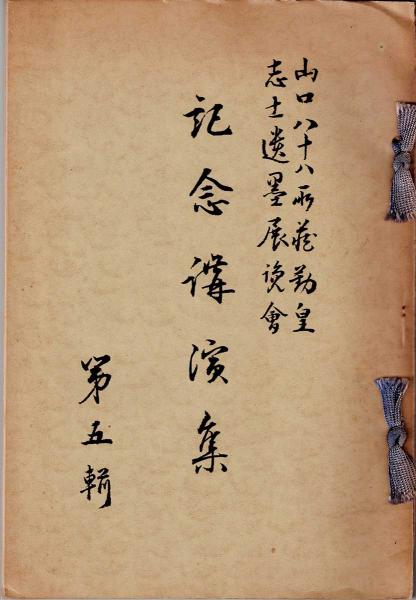 山口八十八所蔵勤皇
志士遺墨展覧會
記念講演集
第五輯